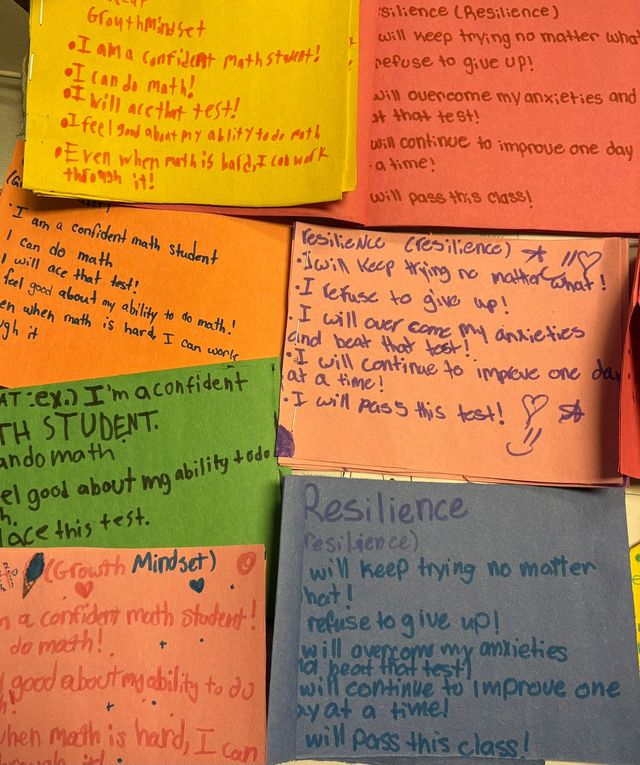 Grouthmindset
•I am a confident math student!
•I can do math!
•I will ace that test!
•I feel good about my ablity to do math
•Even when math is hard, I can work
through it!
silience (Resilience)
will keep trying no matter what
refuse to give up!
will overcome my anxieties and
at that test!
will continue to improve one day
a time!
will pass this class!
• I am a confident math student
I can do math
I will ace that test!
feel good about my ability to do math!
en when math is hard, I can work
ugh it
resilience (resilience)
• I will keep trying no matter what!
• I refuse to give up!
• I will over come my anxieties
and beat that test!
• I will continue to improve one day
at a time!
• I will pass this test!
AT:ex.) I'm a confident
TH STUDENT.
an do math
eel good about my ability to do
h.
ace this test.
(Growth Mindset)
m a confident math student!
do math!
good about my ability to do
when math is hard, I can
through it!
Resilience
resilience)
will keep trying no matter
hat!
refuse to give up!
will overcome my anxieties
nd beat that test!
will continue to improve one
ay at a time!
will pass this class!